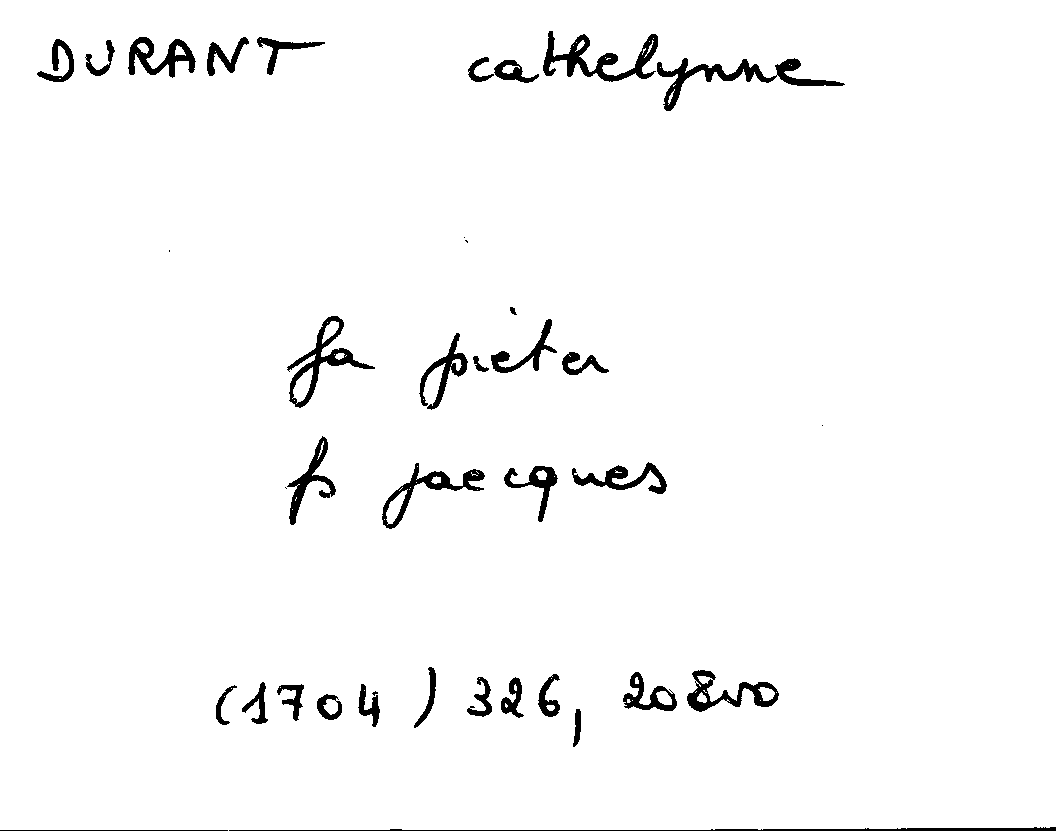 DURANT cathelynne
fa pieter
fs jaecques
(1704) 326, 208vo